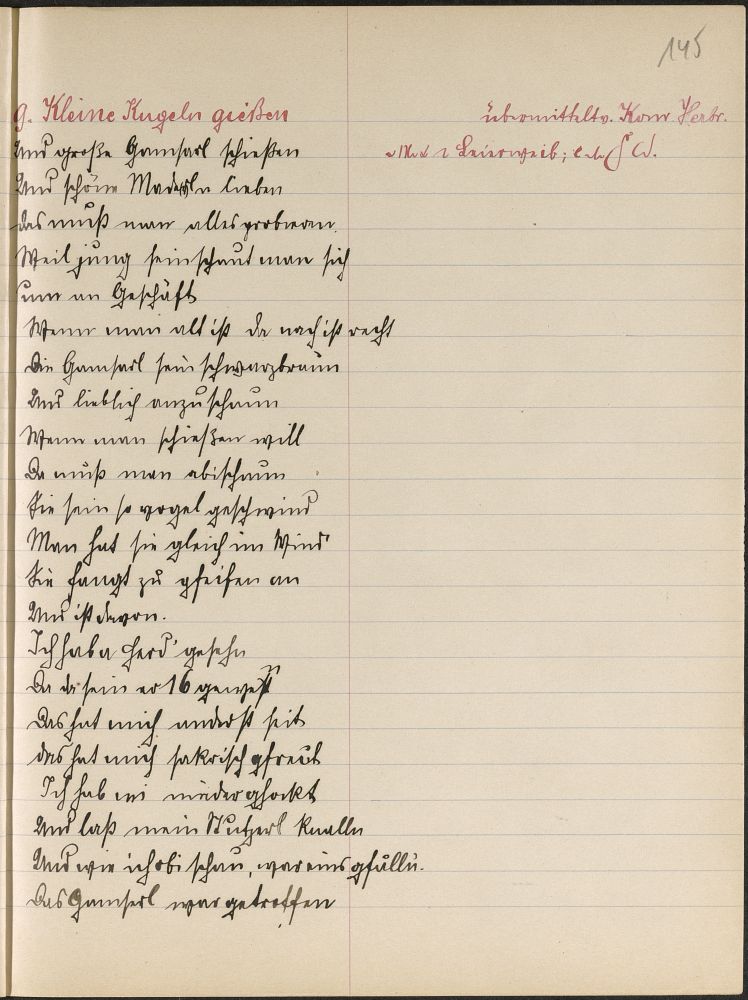 145
9. Kleine Kugeln gießen
übermittelt v. Konr Herbr.
Und große Gamsarl schießen
Leierweib;
Und schöne Maderln lieben
das muß man alles probieren.
Weil jung sein schaut man sich
um an Geschäft
Wenn man alt ist da nach ist recht
Die Gamsarl sein schwarzbraun
Und lieblich anzuschaun
Wenn man schießen will
Da muß man abischaun
Sie sein so vogel geschwind
Man hat sie gleich im Wind
Sie fangt zu pfeifen an
Und ist davon.
Ich hab a Herd' gesehn
Da da sein er 16 gewest
Das hat mich anderst seit
das hat mich sakrisch gfreut
Ich hab mi niederghockt
Und laß mein Stutzerl knalln
Und wie ich obi schau, war eins gfalln.
Das Gamserl war getroffen